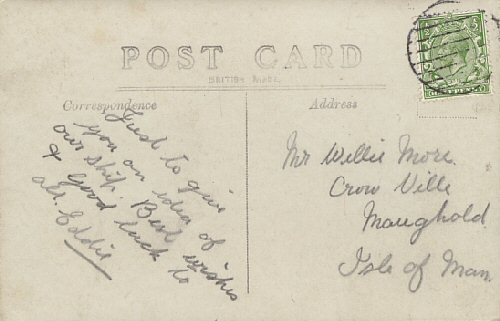 POST CARD
BRITISH MADE
Correspondence
Address
Just to give
you an idea of
our ship. Best wishes
& Good luck to
all. Eddie
Mr Willie More.
Crow Ville
Maughold
Isle of Man.